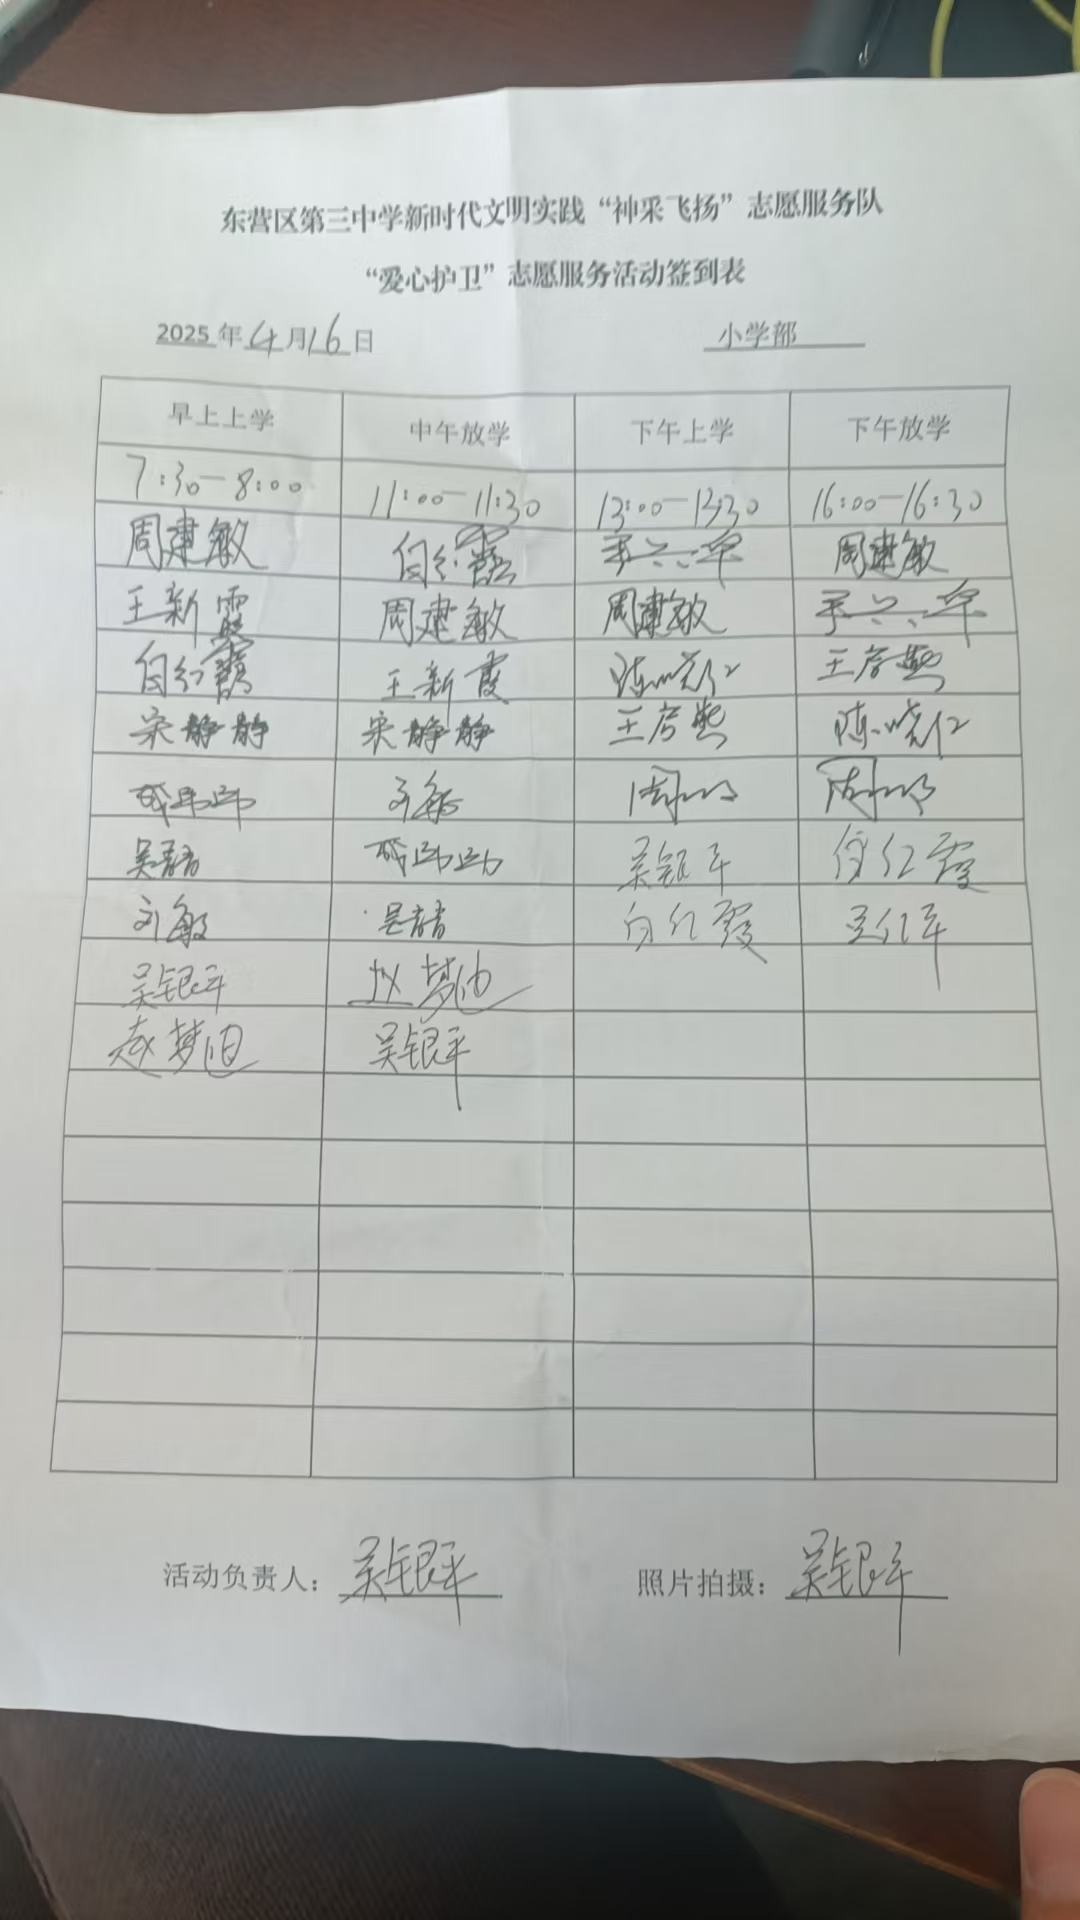 东营区第三中学新时代文明实践“神采飞扬”志愿服务队
“爱心护卫”志愿服务活动签到表
2025年4月16日 小学部
早上上学 中午放学 下午上学 下午放学
7:30—8:00 11:00—11:30 13:00—13:30 16:00—16:30
周建敏 白红霞 周建敏
王新霞 周建敏 周建敏
白红霞 王新霞 陈晓红 王彦燕
宋静静 宋静静 王彦燕 陈晓红
刘敏
吴静 吴银平 白红霞
刘敏 吴静 白红霞
吴银平 赵梦迪
赵梦迪 吴银平
活动负责人：吴银平 照片拍摄：吴银平